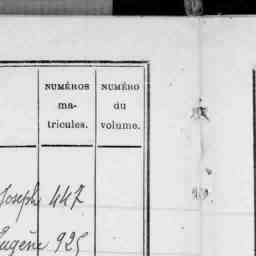 NUMÉROS
ma-
tricules.
NUMÉRO
du
volume.
Joseph 447
Eugène 925